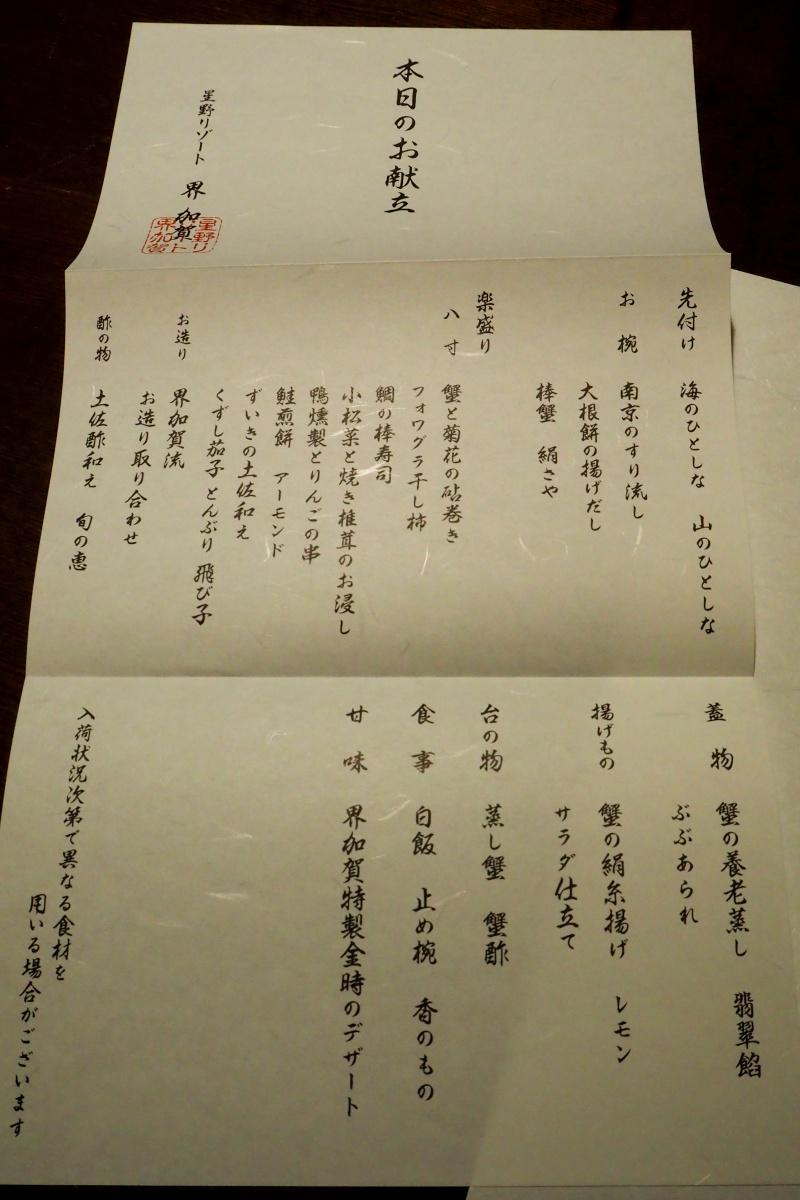 本日のお献立
星野リゾート 界 加賀
星野リゾート界加賀
先付け 海のひとしな 山のひとしな
お椀 南京のすり流し
大根餅の揚げだし
棒蟹 絹さや
楽盛り
八寸 蟹と菊花の砧巻き
フォワグラ干し柿
鯛の棒寿司
小松菜と焼き椎茸のお浸し
鴨燻製とりんごの串
鮭煎餅 アーモンド
ずいきの土佐和え
くずし茄子 とんぶり 飛び子
お造り 界加賀流
お造り取り合わせ
酢の物 土佐酢和え 旬の恵
蓋物 蟹の養老蒸し 翡翠餡
ぶぶあられ
揚げもの 蟹の絹糸揚げ レモン
サラダ仕立て
台の物 蒸し蟹 蟹酢
食事 白飯 止め椀 香のもの
甘味 界加賀特製金時のデザート
入荷状況次第で異なる食材を
用いる場合がございます